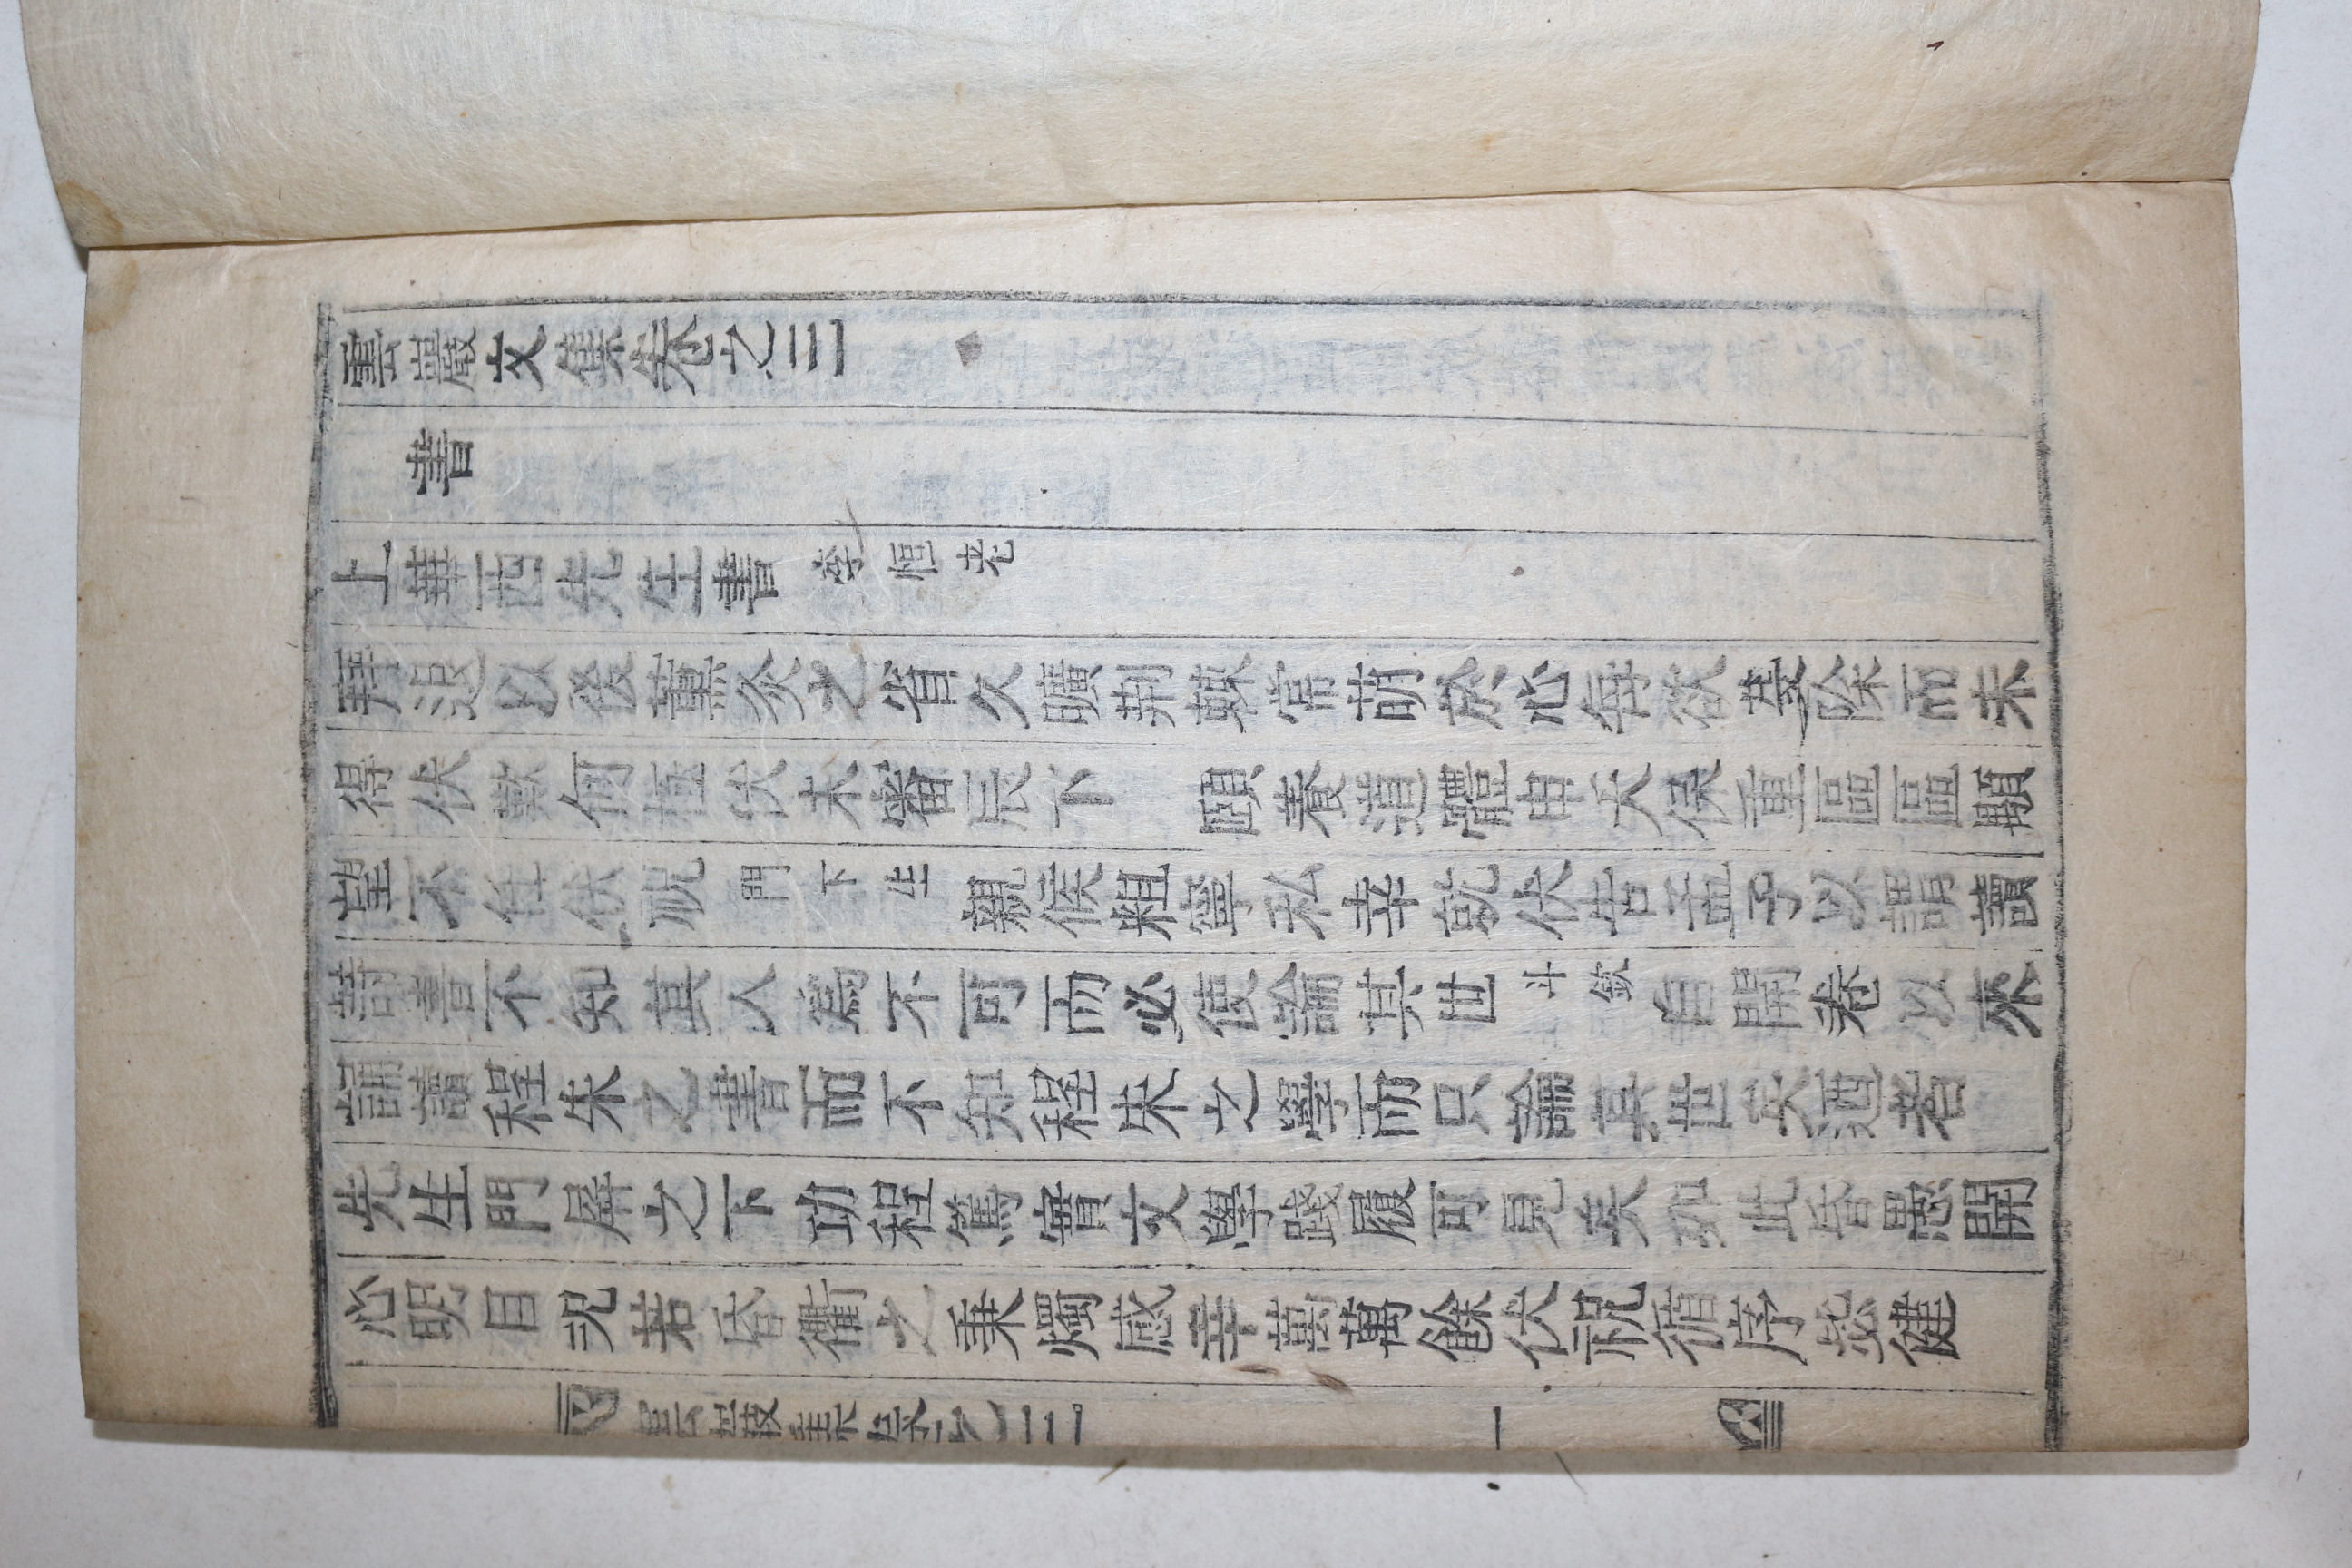 雲巖文集卷之三
書
上華西先生書 李恒老
拜退以後薰灸之省久曠荆棘常萌於心每欲芟除而未
得伏歎何極伏未審辰下 頤養道體申夭保重區區顒
望不任伏祝門下生親候粗寧私幸就伏告孟子以謂讀
詩書不知其人爲不可而必使論其世斗欽自開卷以來
誦讀程朱之書而不知程朱之學而只論其世矣迺者
先生門屛之下功程篤實文學踐履可見矣如此昏愚開
心明目況若昏衢之秉燭感幸萬萬餘伏祝循序毖健
雲巖集卷之三 一